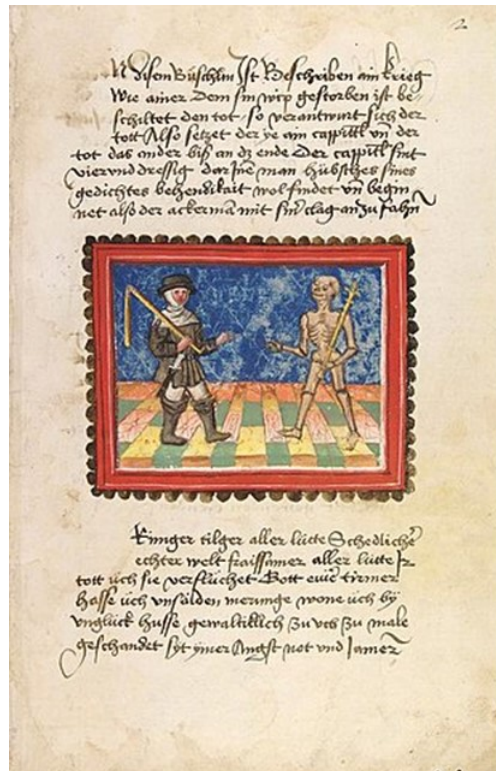 2
In disem büschlin Ist Beschriben ain krieg
wie ainer dem sin wip gestorben ist be-
schiltet den tot so verantwurt sich der
tott Also setzet der ye ain cappittl vn der
tot das ander biß an dz ende Der cappittl sint
vierund dressig dar Inē man hübsches sines
gedichtes behendikait wol findet vn begin
net also der ackermā mit sinr clag an zu fahn
Grimiger tilger aller lütte Schedlicher
echter welt fraissamer aller lütte Ir
tott üch sie verflüchet Gott eüwer tirmer
hasse üch vnsälden merunge wone üch by
vnglück husse gewaltiklich zu üch zu male
geschandet syt ymer Angst not und Jamer